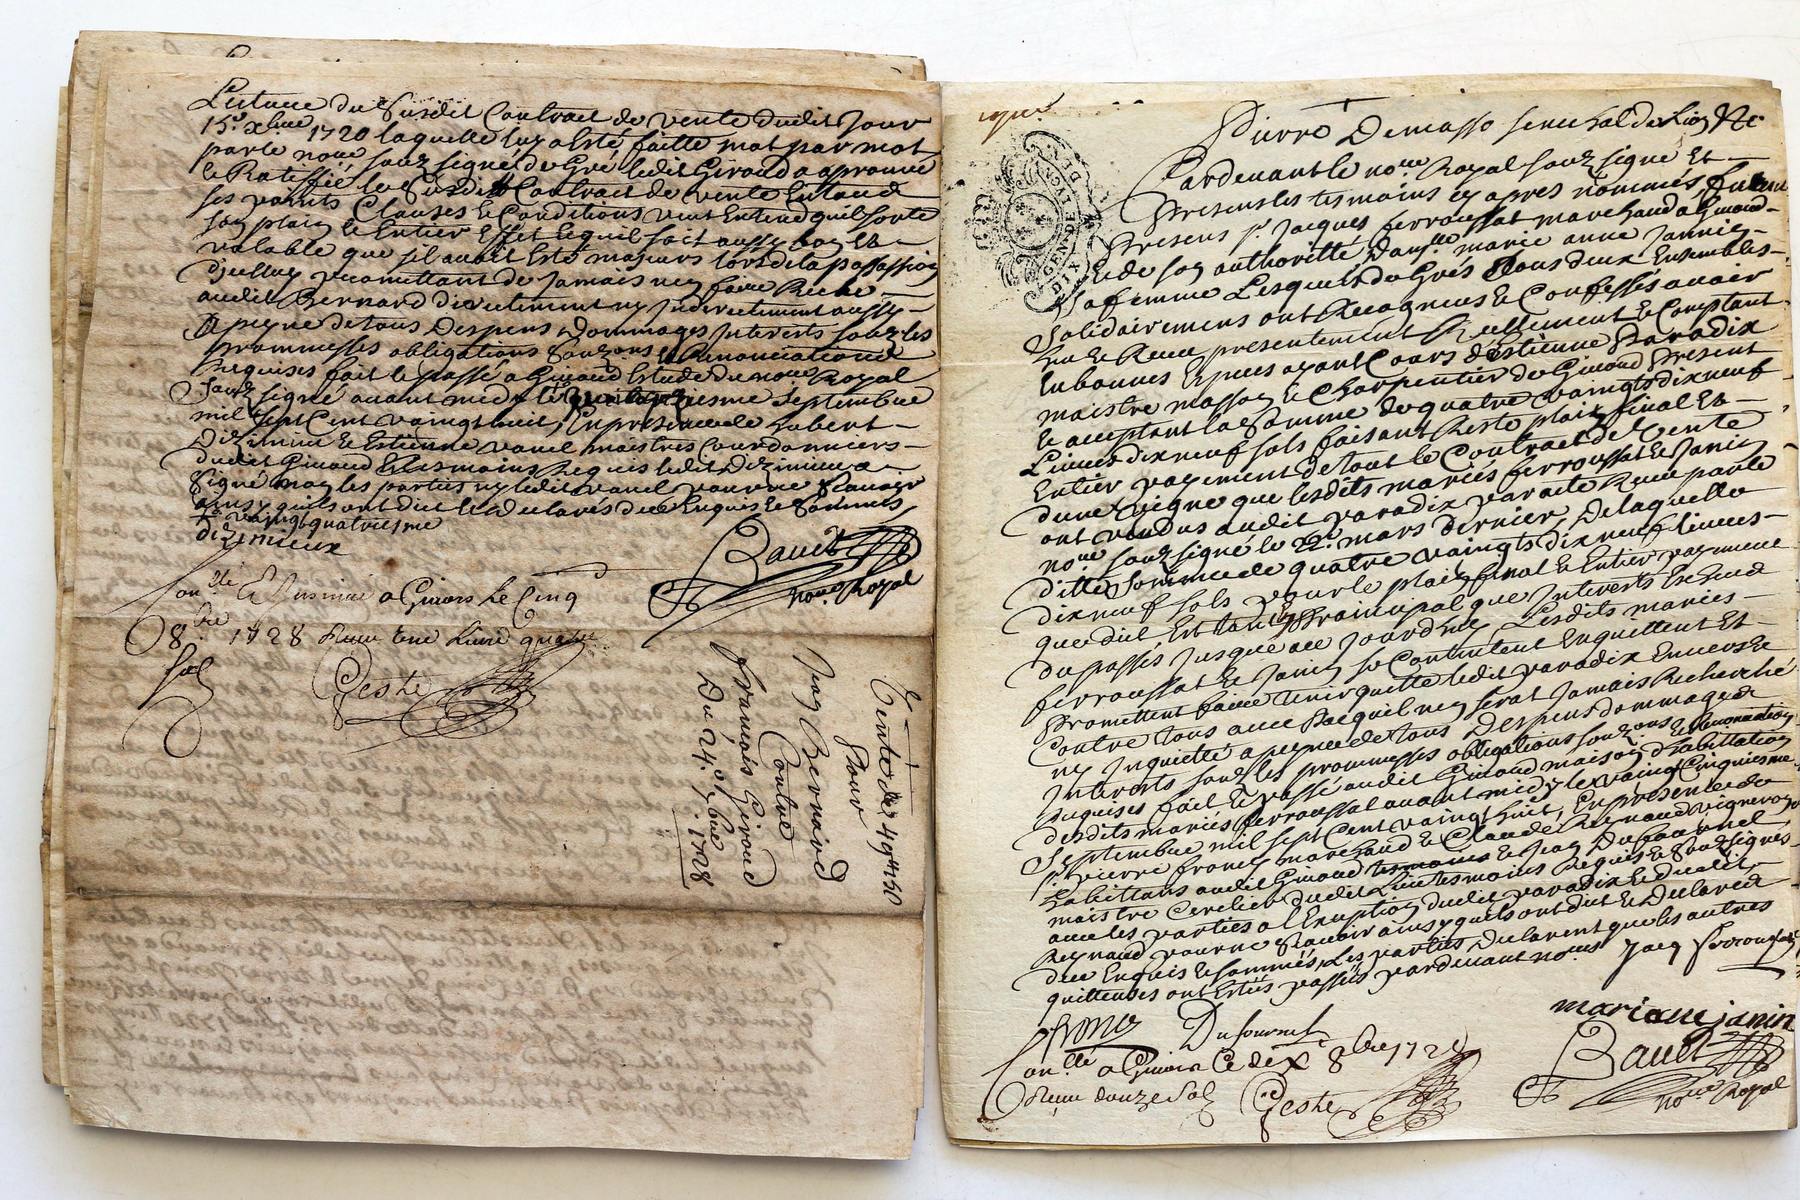 Lecture du Susdit Contract de vente dudit Jour
15e xbre 1720 laquelle luy a Esté faitte mot par mot
par le nore souz signé de Gré ledit Giroud a aprouvé
& Ratiffié le Susdit Contract de vente En tous
ses points Clauses & Conditions veut Entend quil sorte
son plain & Entier Effet & quil soit aussy bon Et
valable que sil avoit Esté majeurs lors de la passation
dicelluy promettant de Jamais ny faire Reche
audit Bernard directement ny Indirectement aussy
A peyne de tous Despens dommages Interests souz les
prommesses obligations & Renonciations
Requises fait & passé a Givord Estude du nore Royal
souz signé avant midy le Septembre
mil sept Cent vaingt huit, En presence de hubert
Dizimieu & Estienne vanel maistres Cordonniers
dudit Givord tesmoins Requis ledit Dizimieu a
signé non les parties ny ledit vanel pour ne scavoir
ainsy quils ont dit & declarés de ce Enquis & sommés
vaing quatriesme
dizimieux
Baudt
nore Royal
Conlle & Insinué a Givors le Cinq
8bre 1728 Receu une Livre quatre
sols
Geste
Vente de 49 15s
Pour
Jean Bernard
Contre
francois Giroud
Du 24e 7bre 1728
Pierre Demasso senechal de Lion &c
Pardevant le nore Royal souz signé Et
Presens les tesmoins cy apres nommés furent
Presens sr Jacques ferroussat marchand a Givord
& de son authorité Danlle marie anne Jannin
sa femme Lesquels de Grés tous deux Ensembles
solidairemens ont Recognus & Confessés avoir
Eu & Receu presentement Reellement & Comptant
En bonnes Especes ayant Cours d'Estienne Paradix
maistre masson & Charpentier de Givord Present
& acceptant la Somme de quatre vaingts dix neuf
Livres dix neuf sols faisant Reste plain final Et
Entier payement de tout le Contract de Vente
dune vigne que lesdits mariés ferroussat & Janin
ont vendus audit paradix par acte Receu par le
nore souz signé le 22e mars dernier, De laquelle
ditte Somme de quatre vaingts dix neuf Livres
dix neuf sols pour le plain final & Entier payement
que dict Est tant Principal que Interests Escheus
du passés Jusque au Jourdhuy Lesdits mariés
ferroussat & Janin se Contentent En quittent Et
Promettent faire tenir quitte ledit paradix Envers &
Contre tous avec Pacte quil ny serat Jamais Recherché
ny Inquietté a peyne de tous Despens dommages &
Interests souz les prommesses obligations souz & Renonciations
Requises fait & passé audit Givord maison d'habittation
desdits mariés ferroussat avant midy le vaingt Cinquiesme
Septembre mil sept Cent vaingt huit, En presence de
sr Pierre francy marchand & Claude Reynaud vigneron
habittans audit Givord tesmoins & Jean Dufournel
maistre Cerclier dudit Lieu tesmoins Requis & Souzsignés
avec les parties a l'Exeuption dudit paradix & dudit
Reynaud pour ne Scavoir ainsy quils ont dit & Declarés
de ce Enquis & sommés, Les parties Declarent que les autres
quittences ont Estés passés pardevant nores Jacq ferroussat
marianejanin
Dufournel
Baudt
nore Royal
Conlle a Givors Ce dix 8bre 1728
Receu douze Sols
Geste
DIX
GENERALITE
DE LION